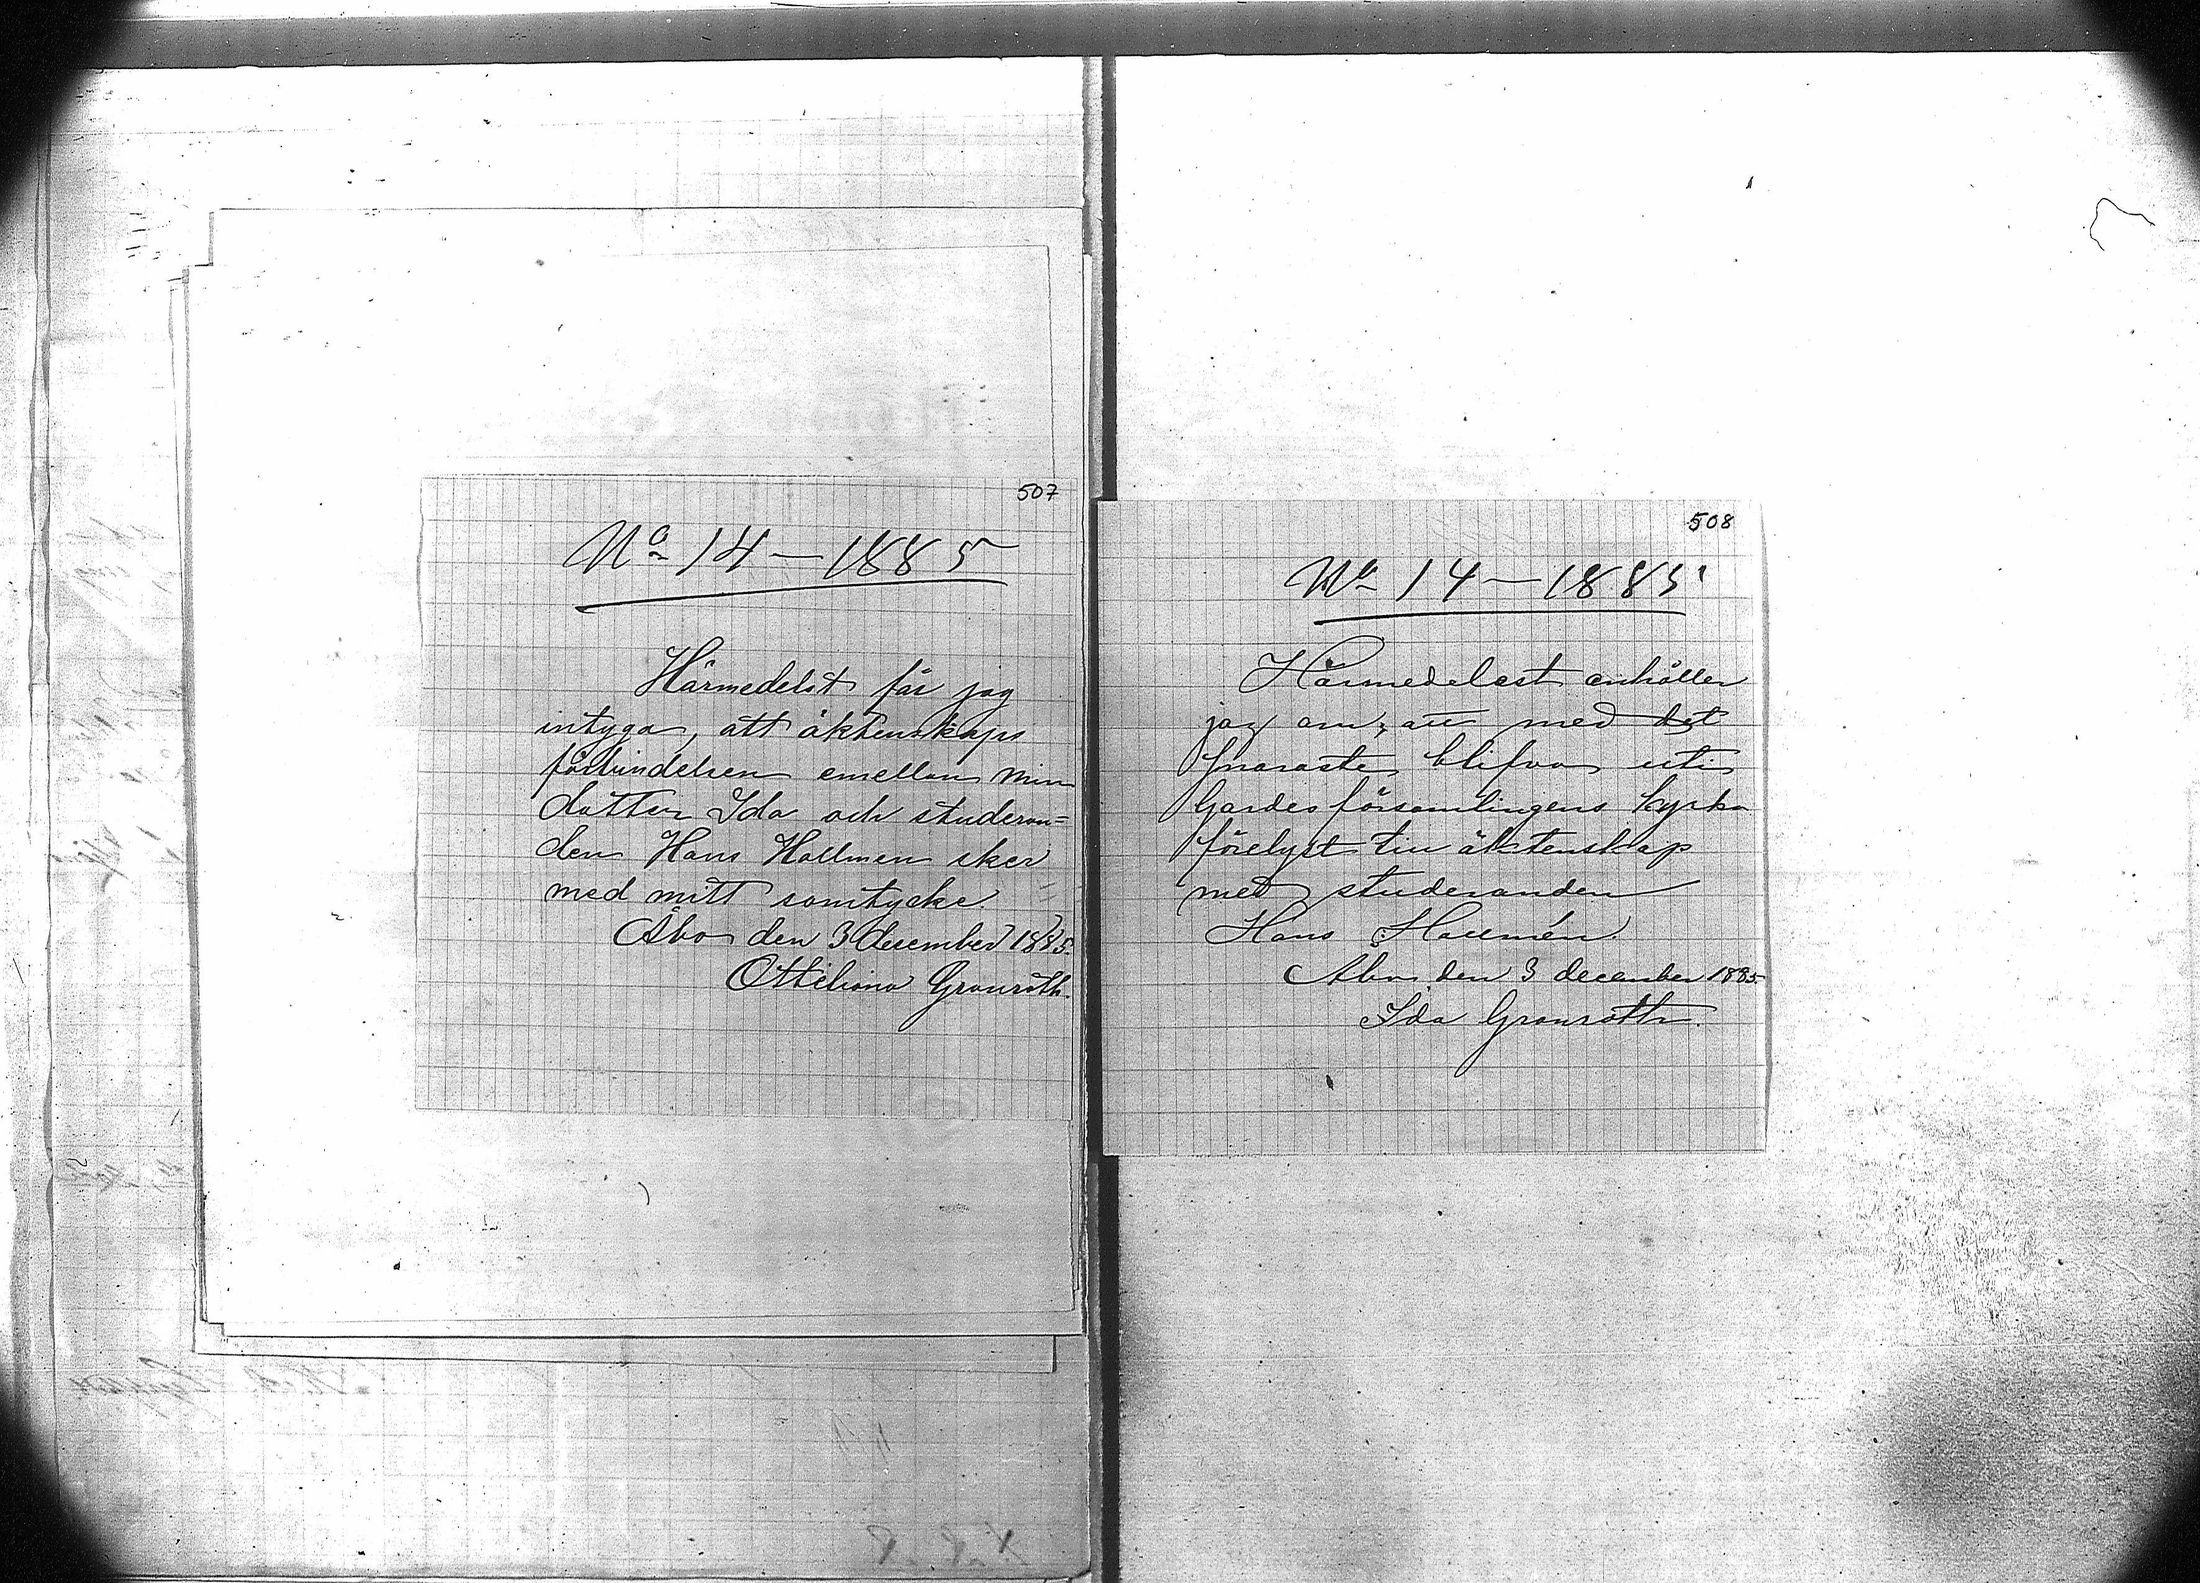 507
No 14 — 1885
Härmedelst får jag
intyga, att äktenskaps
förbindelsen emellan min
dotter Ida och studeran=
den Hans Hallmen sker
med mitt samtycke.
Åbo den 3 desember 1885.
Ottiliana Granroth.
508
No 14 — 1885
Härmedelest anhåller
jag om, att med det
snaraste blifva uti
Gardesförsamlingens kyrka
förelyst till äktenskap
med studeranden
Hans Hallmén.
Åbo, den 3 december 1885.
Ida Granroth.